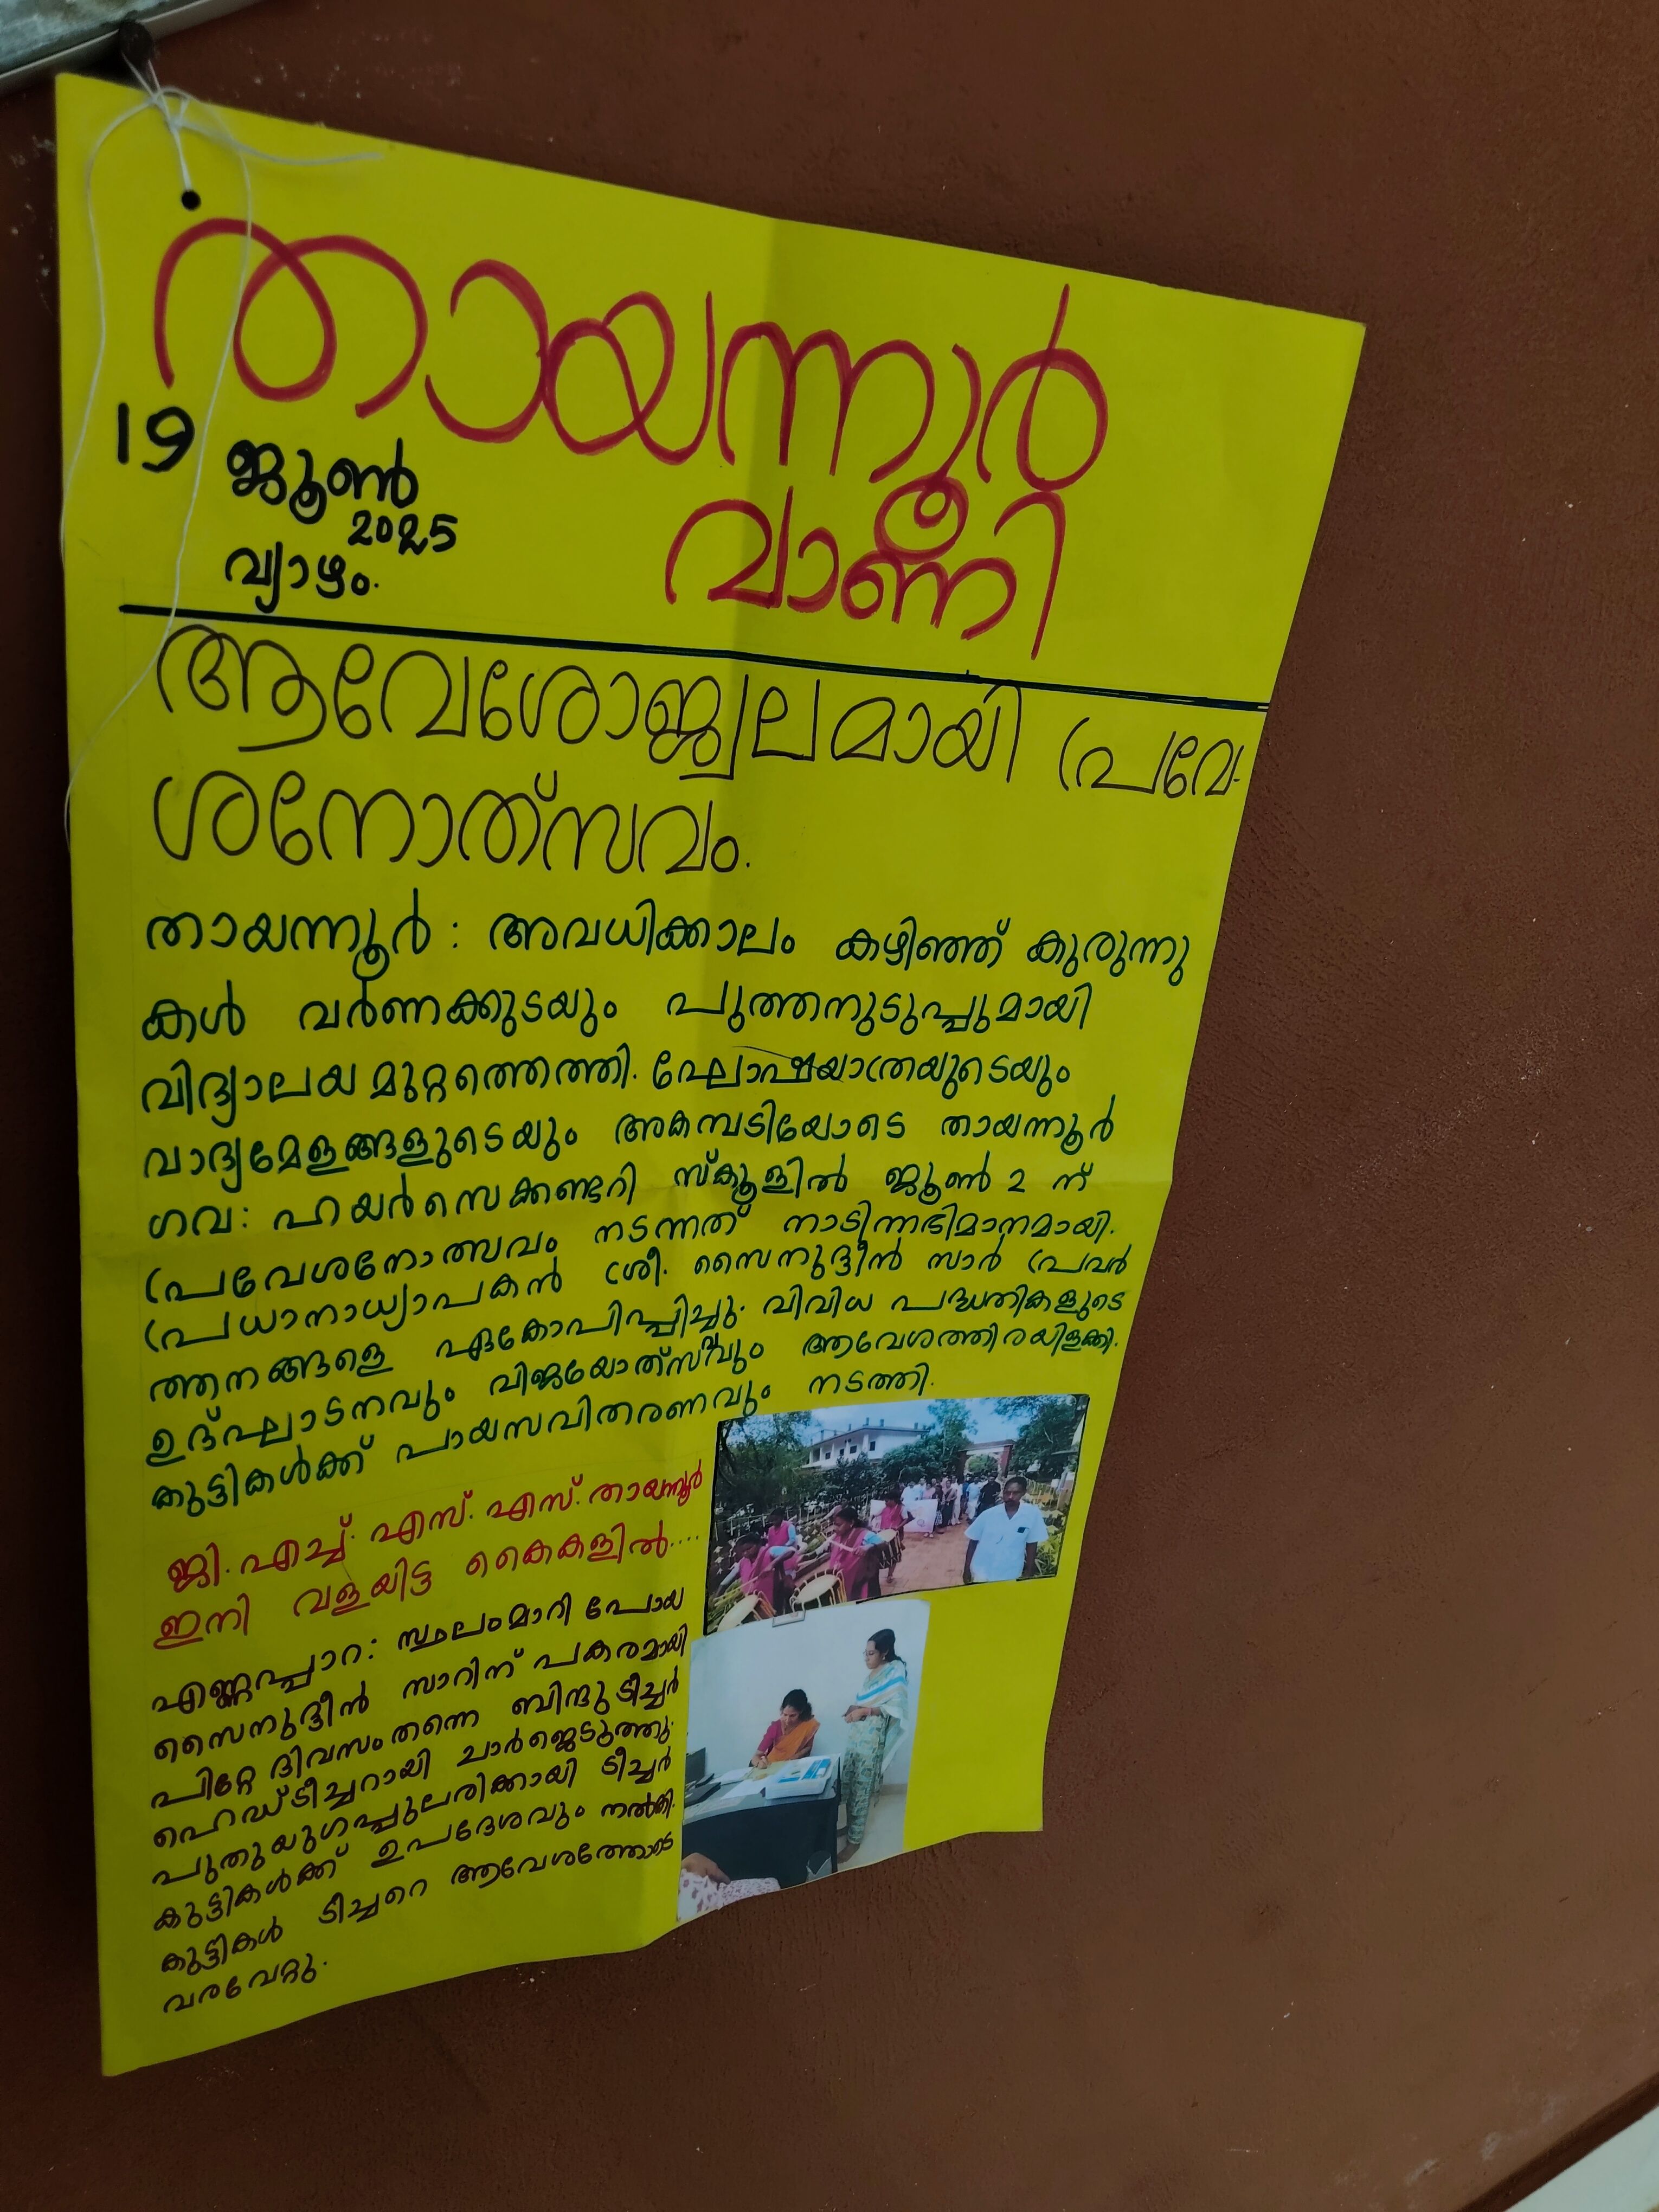 തായന്നൂർ
വാണി
19
ജൂൺ
2025
വ്യാഴം.
ആവേശോജ്ജ്വലമായി പ്രവേ-
ശനോത്സവം.
തായന്നൂർ : അവധിക്കാലം കഴിഞ്ഞ് കുരുന്നു
കൾ വർണക്കുടയും പുത്തനുടുപ്പുമായി
വിദ്യാലയ മുറ്റത്തെത്തി. ഘോഷയാത്രയുടെയും
വാദ്യമേളങ്ങളുടെയും അകമ്പടിയോടെ തായന്നൂർ
ഗവ: ഹയർസെക്കണ്ടറി സ്കൂളിൽ ജൂൺ 2 ന്
പ്രവേശനോത്സവം നടന്നത് നാടിന്നഭിമാനമായി.
പ്രധാനാധ്യാപകൻ ശ്രീ. സൈനുദ്ദീൻ സാർ പ്രവർ
ത്തനങ്ങളെ ഏകോപിപ്പിച്ചു. വിവിധ പദ്ധതികളുടെ
ഉദ്ഘാടനവും വിജയോത്സവവും ആവേശത്തിരയിളക്കി.
കുട്ടികൾക്ക് പായസവിതരണവും നടത്തി.
ജി. എച്ച്. എസ്. എസ്. തായന്നൂർ
ഇനി വളയിട്ട കൈകളിൽ....
എണ്ണപ്പാറ : സ്ഥലംമാറി പോയ
സൈനുദ്ദീൻ സാറിന് പകരമായി
പിറ്റേ ദിവസം തന്നെ ബിന്ദു ടീച്ചർ
ഹെഡ്ടീച്ചറായി ചാർജെടുത്തു.
പുതുയുഗപ്പുലരിക്കായി ടീച്ചർ
കുട്ടികൾക്ക് ഉപദേശവും നൽകി.
കുട്ടികൾ ടീച്ചറെ ആവേശത്തോടെ
വരവേറ്റു.